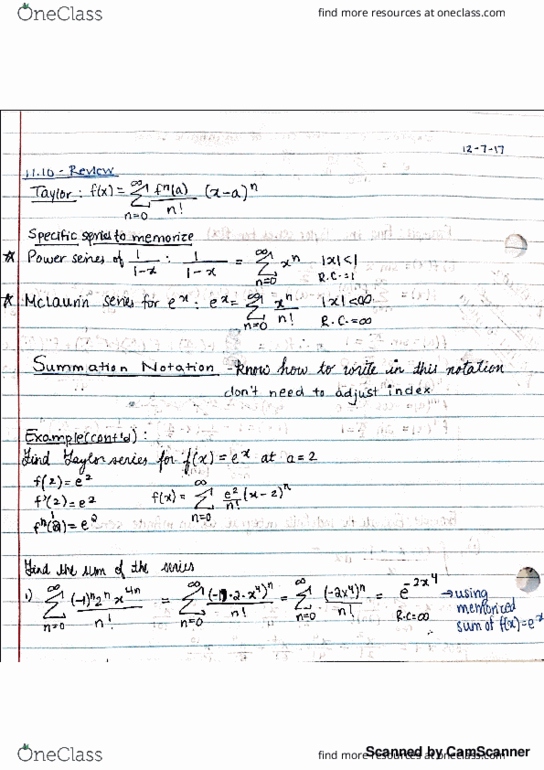 OneClass find more resources at oneclass.com
12-7-17
11.10 - Review
Taylor: f(x) = ∞ Σ n=0 fⁿ(a)/n! (x-a)ⁿ
Specific series to memorize
☆ Power seires of 1/1-x : 1/1-x = ∞ Σ n=0 xⁿ |x|<1 R.C.=1
☆ McLaurin series for eˣ : eˣ = ∞ Σ n=0 xⁿ/n! |x|<∞ R.C.=∞
Summation Notation - Know how to write in this notation
don't need to adjust index
Example(cont'd):
Find Taylor series for f(x) = eˣ at a=2
f(2)=e²
f'(2)=e² f(x) = ∞ Σ n=0 e²/n! (x-2)ⁿ
fⁿ(2)=e²
Find the sum of the series
1) ∞ Σ n=0 (-1)ⁿ2ⁿx⁴ⁿ/n! = ∞ Σ n=0 (-1·2·x⁴)ⁿ/n! = ∞ Σ n=0 (-2x⁴)ⁿ/n! = e^-2x⁴ R.C=∞ → using
memorized
sum of f(x)=eˣ
Scanned by CamScanner
OneClass find more resources at oneclass.com